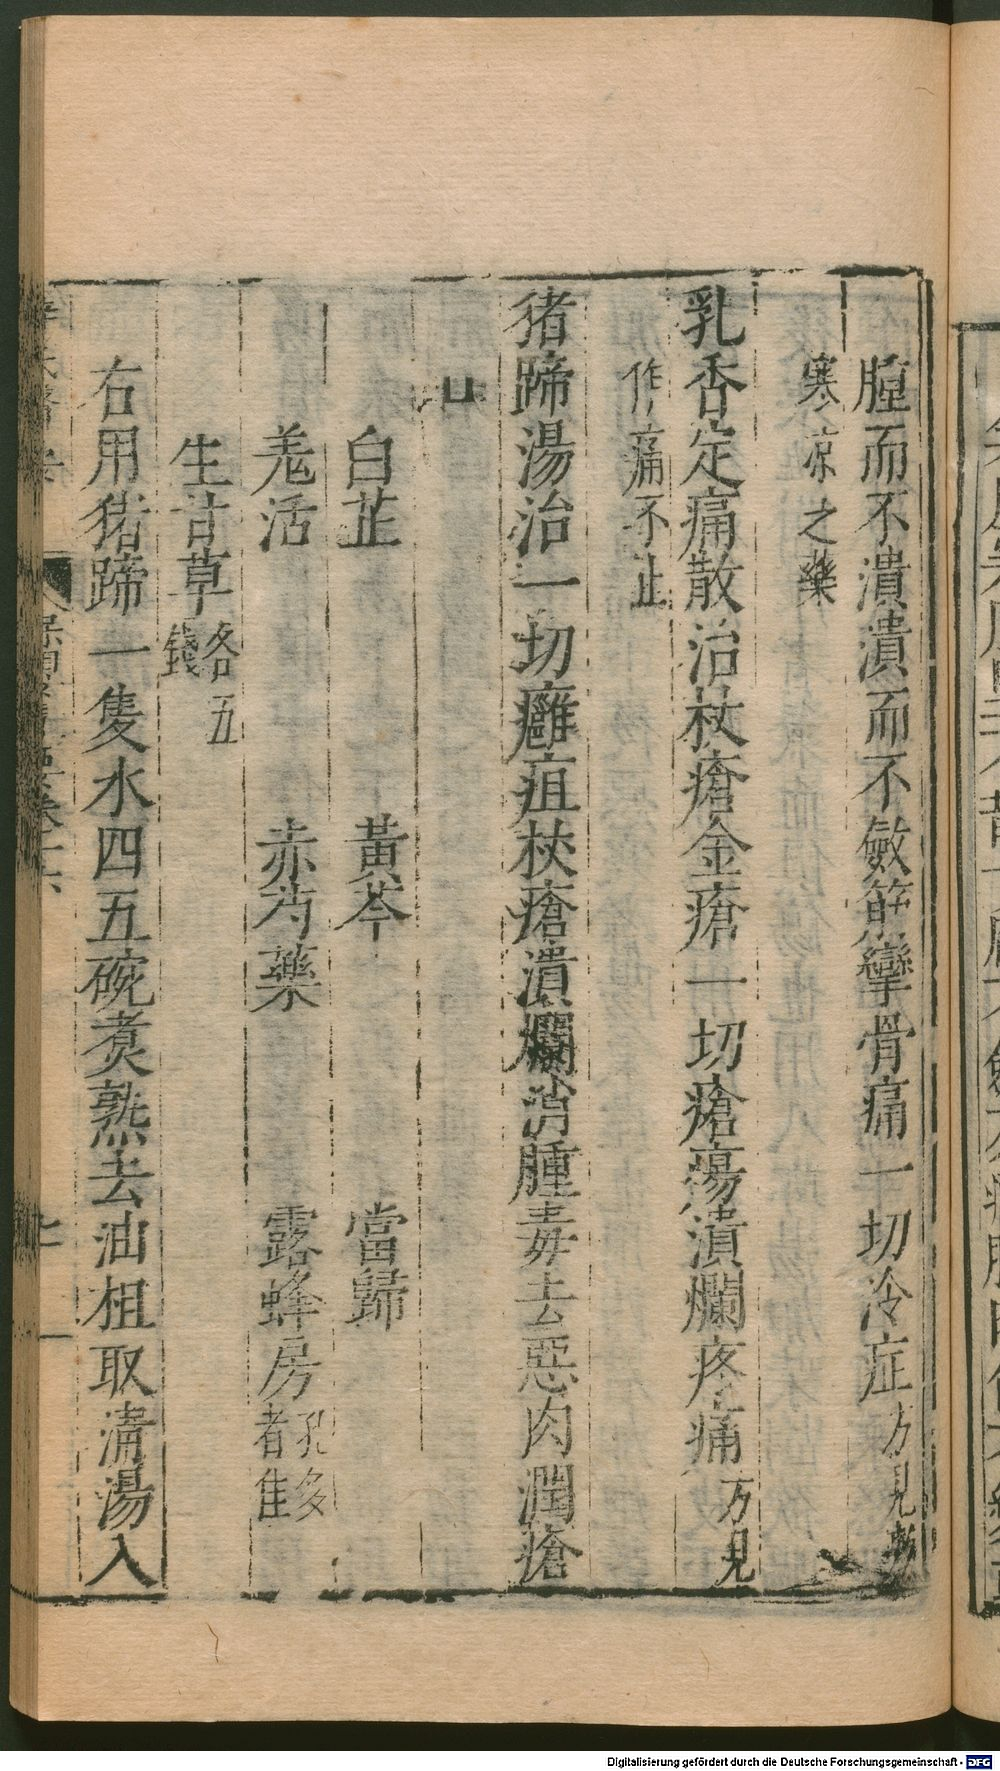 腫而不潰潰而不斂筋攣骨痛一切冷症方見
寒凉之藥
乳香定痛散治杖瘡金瘡一切瘡瘍潰爛疼痛方見
作痛不止
猪蹄湯治一切癰疽杖瘡潰爛消腫毒去惡肉潤瘡
口
白芷　黃芩　當歸
羗活　赤芍藥　露蜂房孔多者佳
生甘草各五錢
右用猪蹄一隻水四五碗煑熟去油柤取清湯入
Digitalisierung gefördert durch die Deutsche Forschungsgemeinschaft - DFG